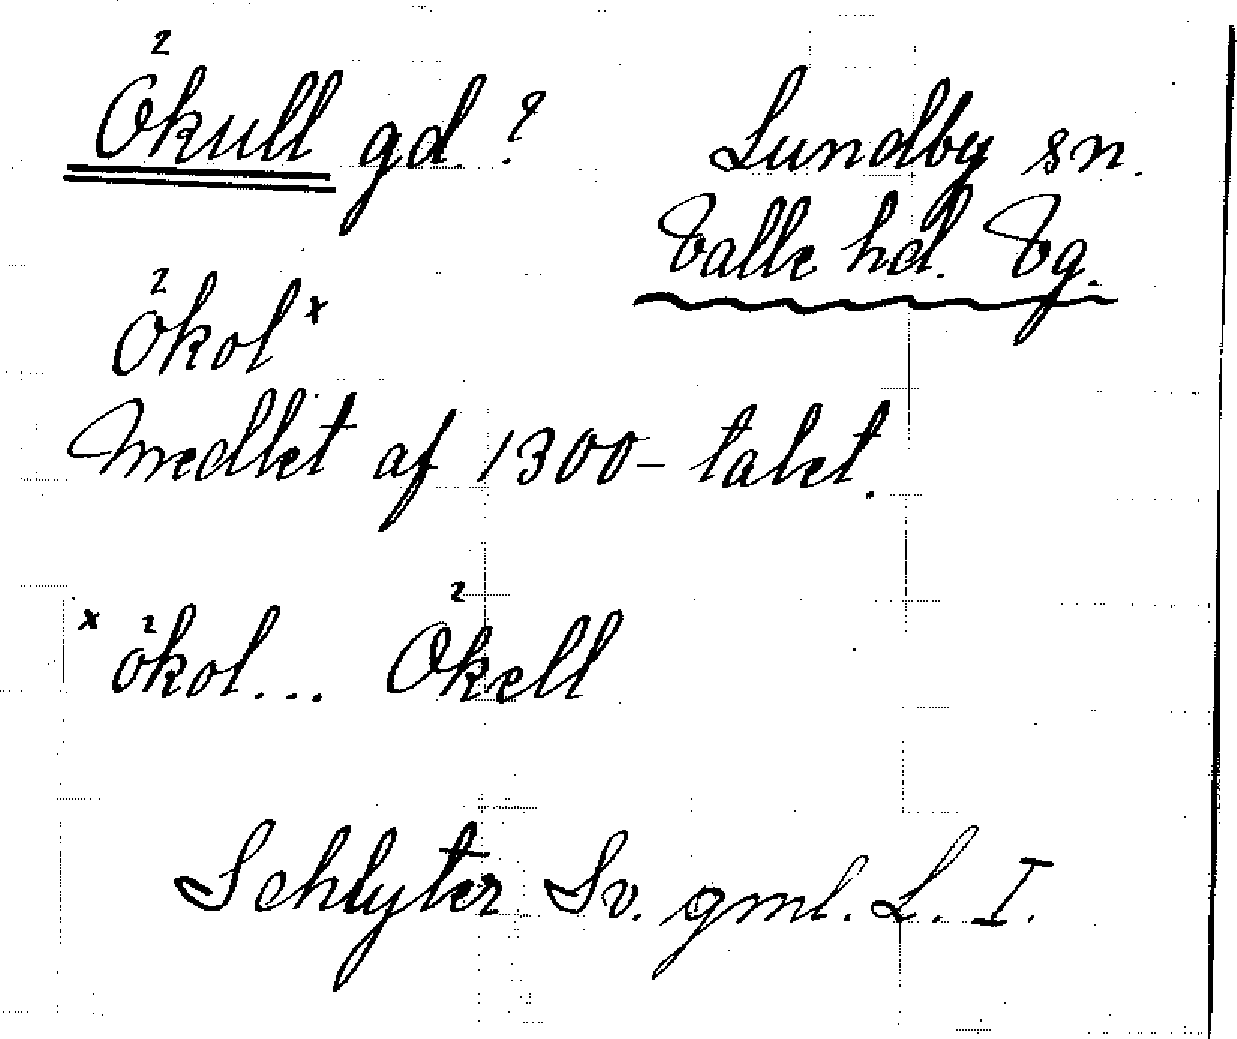 Ökull gd. ?
Lundby sn.
Valle hd. Vg.
Ökol x
Medlet af 1300-talet.
x ökol... Ökell
Schlyter Sv. gml. L. I.